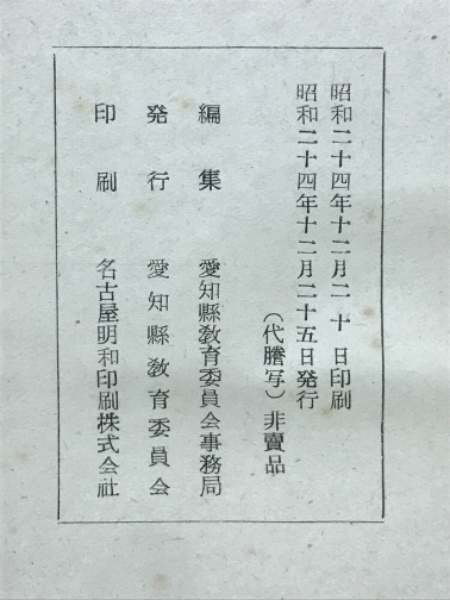 昭和二十四年十二月二十日印刷
昭和二十四年十二月二十五日発行
（代謄写）非賣品
編集　愛知縣教育委員会事務局
発行　愛知縣教育委員会
印刷　名古屋明和印刷株式会社